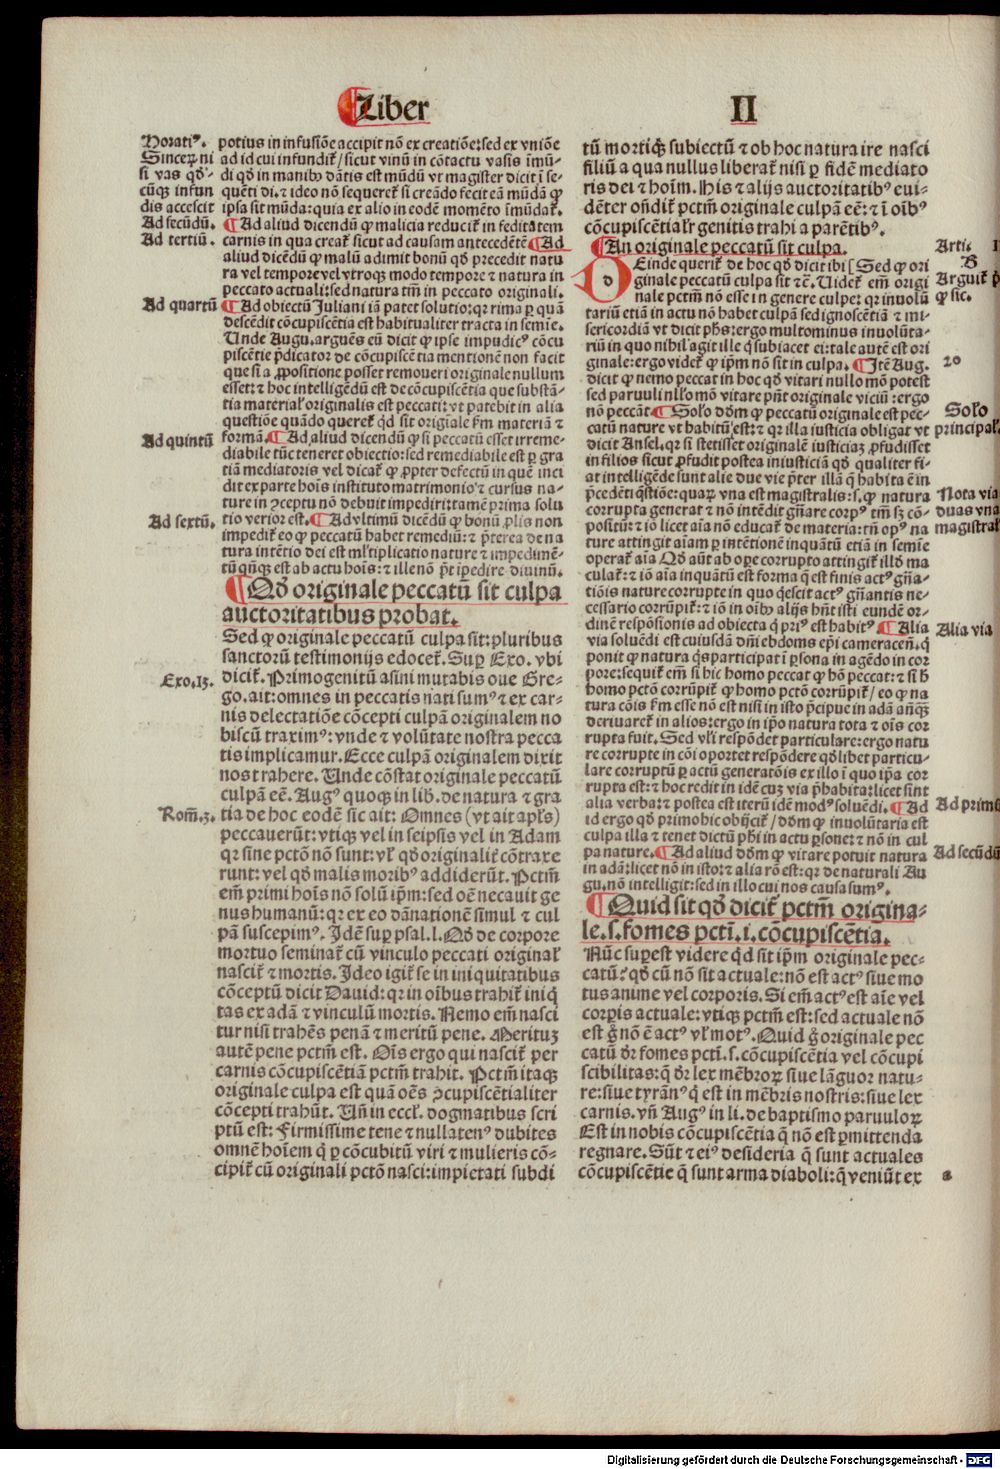 Liber
II
Horatiꝰ.
Sincerū ni
si vas qd'
cūqꝫ infun
dis accescit
Ad secūdū.
Ad tertiū.
Ad quartū
Ad quintū
Ad sextū.
Exo.13.
Rom̄.3.
potius in infusiōe accipit nō ex creatiōe: sed ex vniōe
ad id cui infundit̄/sicut vinū in cōtactu vasis īmū-
di qd' in manibꝰ dātis est mūdū vt magister dicit ī se-
quēti di. ⁊ ideo nō sequeret̄ si creādo fecit eā mūdā ꝙ
ipsa sit mūda: quia ex alio in eodē momēto īmūdat̄.
¶ Ad aliud dicendū ꝙ malicia reducit̄ in feditatem
carnis in qua creat̄ sicut ad causam antecedētē ¶ Ad
aliud dicēdū ꝙ malū adimit bonū qd' precedit natu
ra vel tempore vel vtroqꝫ modo tempore ⁊ natura in
peccato actuali: sed natura tm̄ in peccato originali.
¶ Ad obiectū Juliani iā patet solutio: qꝛ rima ꝑ quā
descēdit cōcupiscētia est habitualiter tracta in semīe.
Unde Augu. arguēs eū dicit ꝙ ipse impudicꝰ cōcu
piscētie p̄dicator de cōcupiscētia mentionē non facit
que si a ꝓpositione posset remoueri originale nullum
esset: ⁊ hoc intelligēdū est de cōcupiscētia que substā-
tia material' originalis est peccati: vt patebit in alia
questiōe quādo queret̄ qd' sit origīale ẜm materiā ⁊
formā. ¶ Ad aliud dicendū ꝙ si peccatū esset irreme-
diabile tūc teneret obiectio: sed remediabile est ꝑ gra
tiā mediatoris vel dicat̄ ꝙ ꝓpter defectū in quē inci
dit ex parte hoīs instituto matrimonio ⁊ cursus na-
ture in ꝯceptu nō debuit impediri: tamē prima solu
tio verior est. ¶ Ad vltimū dicēdū ꝙ bonū ꝓlis non
impedit̄ eo ꝙ peccatū habet remediū: ⁊ p̄terea de na
tura intētio dei est ml'tiplicatio nature ⁊ impedimē-
tū qn̄qꝫ est ab actu hoīs: ⁊ ille nō p̄t īpedire diuinū.
¶ Qd' originale peccatū sit culpa
auctoritatibus probat.
Sed ꝙ originale peccatū culpa sit: pluribus
sanctorū testimonijs edocet̄. Suꝑ Exo. vbi
dicit̄. Primogenitū asini mutabis oue Gre-
go. ait: omnes in peccatis nati sumꝰ ⁊ ex car-
nis delectatiōe cōcepti culpā originalem no
biscū traximꝰ: vnde ⁊ volūtate nostra pecca
tis implicamur. Ecce culpā originalem dixit
nos trahere. Unde cōstat originale peccatū
culpā eē. Augꝰ quoqꝫ in lib. de natura ⁊ gra
tia de hoc eodē sic ait: Omnes (vt ait apl's)
peccauerūt: vtiqꝫ vel in seipsis vel in Adam
qꝛ sine pctō nō sunt: vl' qd' originalit̄ cōtraxe
runt: vel qd' malis moribꝰ addiderūt. Pctm̄
em̄ primi hoīs nō solū ip̄m: sed oē necauit ge
nus humanū: qꝛ ex eo dānationē simul ⁊ cul
pā suscepimꝰ. Idē suꝑ psal.l. Qd' de corpore
mortuo seminat̄ cū vinculo peccati original'
nascit̄ ⁊ mortis. Ideo igit̄ se in iniquitatibus
cōceptū dicit Dauid: qꝛ in oībus trahit̄ iniq̇
tas ex adā ⁊ vinculū mortis. Nemo em̄ nasci
tur nisi trahēs penā ⁊ meritū pene. Meritus
autē pene pctm̄ est. Oīs ergo qui nascit̄ per
carnis cōcupiscētiā pctm̄ trahit. Pctm̄ itaqꝫ
originale culpa est quā oēs ꝯcupiscētialiter
cōcepti trahūt. Un̄ in eccl'. dogmatibus scri
ptū est: Firmissime tene ⁊ nullatenꝰ dubites
omnē hoīem q̇ ꝑ cōcubitū viri ⁊ mulieris cō-
cipit̄ cū originali pctō nasci: impietati subdi
tū mortiqꝫ subiectū ⁊ ob hoc natura ire nasci
filiū a qua nullus liberat̄ nisi ꝑ fidē mediato
ris dei ⁊ hoīm. His ⁊ alijs auctoritatibꝰ eui-
dēter on̄dit̄ pctm̄ originale culpā eē: ⁊ ī oībꝰ
cōcupiscētialr̄ genitis trahi a parētibꝰ.
¶ An originale peccatū sit culpa.
DEinde querit̄ de hoc qd' dicit ibi [Sed ꝙ ori
ginale peccatū culpa sit ⁊c̄. Uidet̄ em̄ origi
nale pctm̄ nō esse in genere culpe: qꝛ inuolū
tariū etiā in actu nō habet culpam sed ignoscētiā ⁊ mi-
sericordiā vt dicit ph̄s: ergo multominus inuolūta-
riū in quo nihil agit ille q̇ subiacet ei: tale autē est ori
ginale: ergo videt̄ ꝙ ip̄m nō sit in culpa. ¶ Itē Aug.
dicit ꝙ nemo peccat in hoc qd' vitari nullo mō potest
sed paruuli nl'lo mō vitare pn̄t originale viciū: ergo
nō peccāt. ¶ Sol'o dōm ꝙ peccatū originale est pec-
catū nature vt habitū est: ⁊ qꝛ illa iusticia obligat vt
dicit Ansel. qꝛ si stetisset originalē iusticiaꝫ ꝓfudisset
in filios sicut ꝓfudit postea iniusticiā qd' qualiter fi-
at intelligēde sunt alie due vie p̄ter illā q̄ habita ē in
p̄cedēti q̄stiōe: quaꝝ vna est magistralis: s. ꝙ natura
corrupta generat ⁊ nō intēdit gn̄are corpꝰ tm̄ sꝫ cō-
positū: ⁊ iō licet aīa nō educat̄ de materia: tn̄ opꝰ na
ture attingit aīam ꝑ intētionē inquātū etiā in semīe
operat̄ aīa Qd' aūt ab oꝑe corrupto attingit̄ illd' ma
culat̄: ⁊ iō aīa inquātū est forma q̄ est finis actꝰ gn̄a-
tiōis nature corrupte in quo q̇escit actꝰ gn̄antis ne-
cessario corrūpit̄: ⁊ iō in oībꝰ alijs hn̄t isti eundē or-
dinē respōsionis ad obiecta q̇ priꝰ est habitꝰ ¶ Alia
via soluēdi est cuiusdā dn̄i ebdoms ep̄i cameraceñ. q̇
ponit ꝙ natura q̇s participat ī ꝑsona in agēdo in cor
pore: sequit̄ em̄ si hic homo peccat ꝙ hō peccat: ⁊ si h'
homo pctō corrūpit̄ ꝙ homo pctō corrūpit̄/ eo ꝙ na
tura cōis ẜm esse nō est nisi in isto p̄cipue in adā añq̄ꝫ
deriuaret̄ in alios: ergo in ip̄o natura tota ⁊ oīs cor
rupta fuit. Sed vl'i respōdet particulare: ergo natu
re corrupte in cōi oportet respōdere qd'libet particu-
lare corruptū ꝑ actū generatōis ex illo ī quo ip̄a cor
rupta est: ⁊ hoc redit in idē cuꝫ via p̄habita: licet sint
alia verba: ⁊ postea est iterū idē modꝰ soluēdi. ¶ Ad
id ergo qd' primo hic obijcit̄/ dōm ꝙ inuolūtaria est
culpa illa ⁊ tenet dictū ph̄i in actu ꝑsone: ⁊ nō in cul
pa nature. ¶ Ad aliud dōm ꝙ vitare potuit natura
in adā: licet nō in isto: ⁊ alia rō est: qꝛ de naturali Au
gu. nō intelligit: sed in illo cui nos causa sumꝰ.
¶ Quid sit qd' dicit̄ pctm̄ origina-
le. s. fomes pcti. i. cōcupiscētia.
Nūc suꝑest videre qd' sit ip̄m originale pec-
catū? qd' cū nō sit actuale: nō est actꝰ siue mo
tus anime vel corporis. Si em̄ actꝰ est aīe vel
corꝑis actuale: vtiqꝫ pctm̄ est: sed actuale nō
est g̊ nō ē actꝰ vl' motꝰ. Quid g̊ originale pec
catū dr̄: fomes pcti. s. cōcupiscētia vel cōcupi
scibilitas: q̄ dr̄ lex mēbroꝝ siue lāguor natu-
re: siue tyrānꝰ q̇ est in mēbris nostris: siue lex
carnis. vn̄ Augꝰ in li. de baptismo paruuloꝝ
Est in nobis cōcupiscētia q̄ nō est ꝑmittenda
regnare. Sūt ⁊ eiꝰ desideria q̄ sunt actuales
cōcupiscētie q̄ sunt arma diaboli: q̄ veniūt ex
Arti. I
B
Arguit̄ p̄
ꝙ sic.
20
Sol'o
principal'.
Nota via
duas vna
magistral'
Alia via
Ad primū
Ad secūdū
a
Digitalisierung gefördert durch die Deutsche Forschungsgemeinschaft - DFG